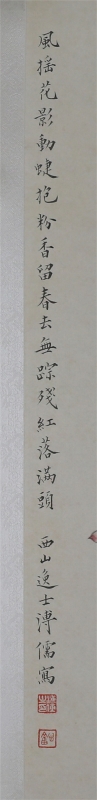 風搖花影動蜨抱粉香留春去無踪殘紅落滿頭 西山逸士溥儒寫